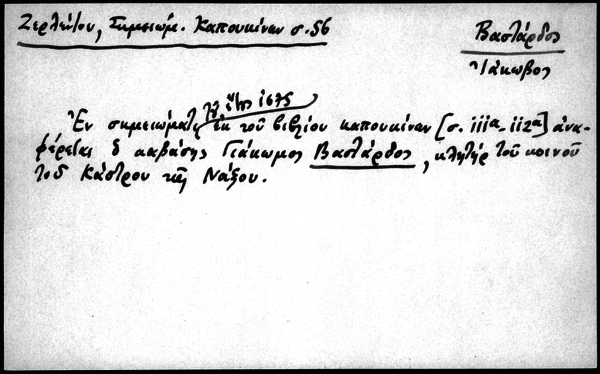 Ζερλέντου, Σημειώμ. Καπουκίνων σ. 56
Βαστάρδος
Ἰάκωβος
τοῦ ἔτους 1675
Ἐν σημειώματι ἐκ τοῦ βιβλίου καπουκίνων [σ. 111α-112α] ἀνα-
φέρεται ὁ καβάσης Γιάκωμος Βαστάρδος, κλητὴρ τοῦ κοινοῦ
τοῦ Κάστρου τῆς Νάξου.